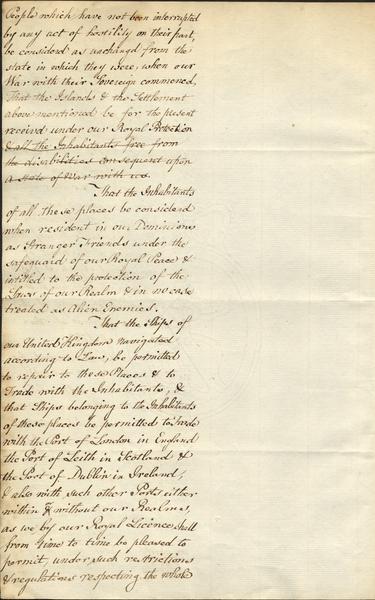 People which have not been interrupted
by any act of hostility on their part,
be considered as unchangd from the
state in which they were, when our
War with their Sovereign commenced,
That the Islands & the Settlement
abovementioned be for the present
receivd under our Royal Protection
& all the Inhabitants free from
the disabilities consequent upon
a state of War with us.
That the Inhabitants
of all these places be considerd
when resident in our Dominions
as Stranger Friends under the
safeguard of our Royal Peace &
intitled to the protection of the
Laws of our Realm & in no case
treated as Alien Enemies.
That the Ships of
our United Kingdom navigated
according to Law, be permitted
to repair to these Places & to
Trade with the Inhabitants, &
that Ships belonging to the Inhabitants
of these places be permitted to trade
with the Port of London in England
the Port of Leith in Scotland &
the Port of Dublin in Ireland,
& also with such other Ports either
within & without our Realms,
as we by our Royal Licence shall
from time to time be pleased to
permit, under such restrictions
& regulations respecting the whole